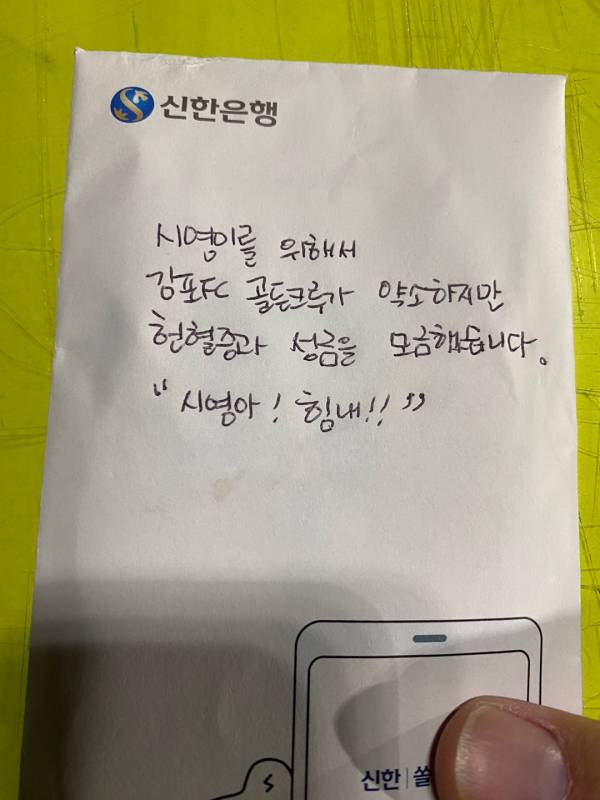 신한은행
시영이를 위해서
김포FC 골든크루가 약소하지만
헌혈증과 성금을 모금했습니다.
"시영아! 힘내!!"
신한 쏠